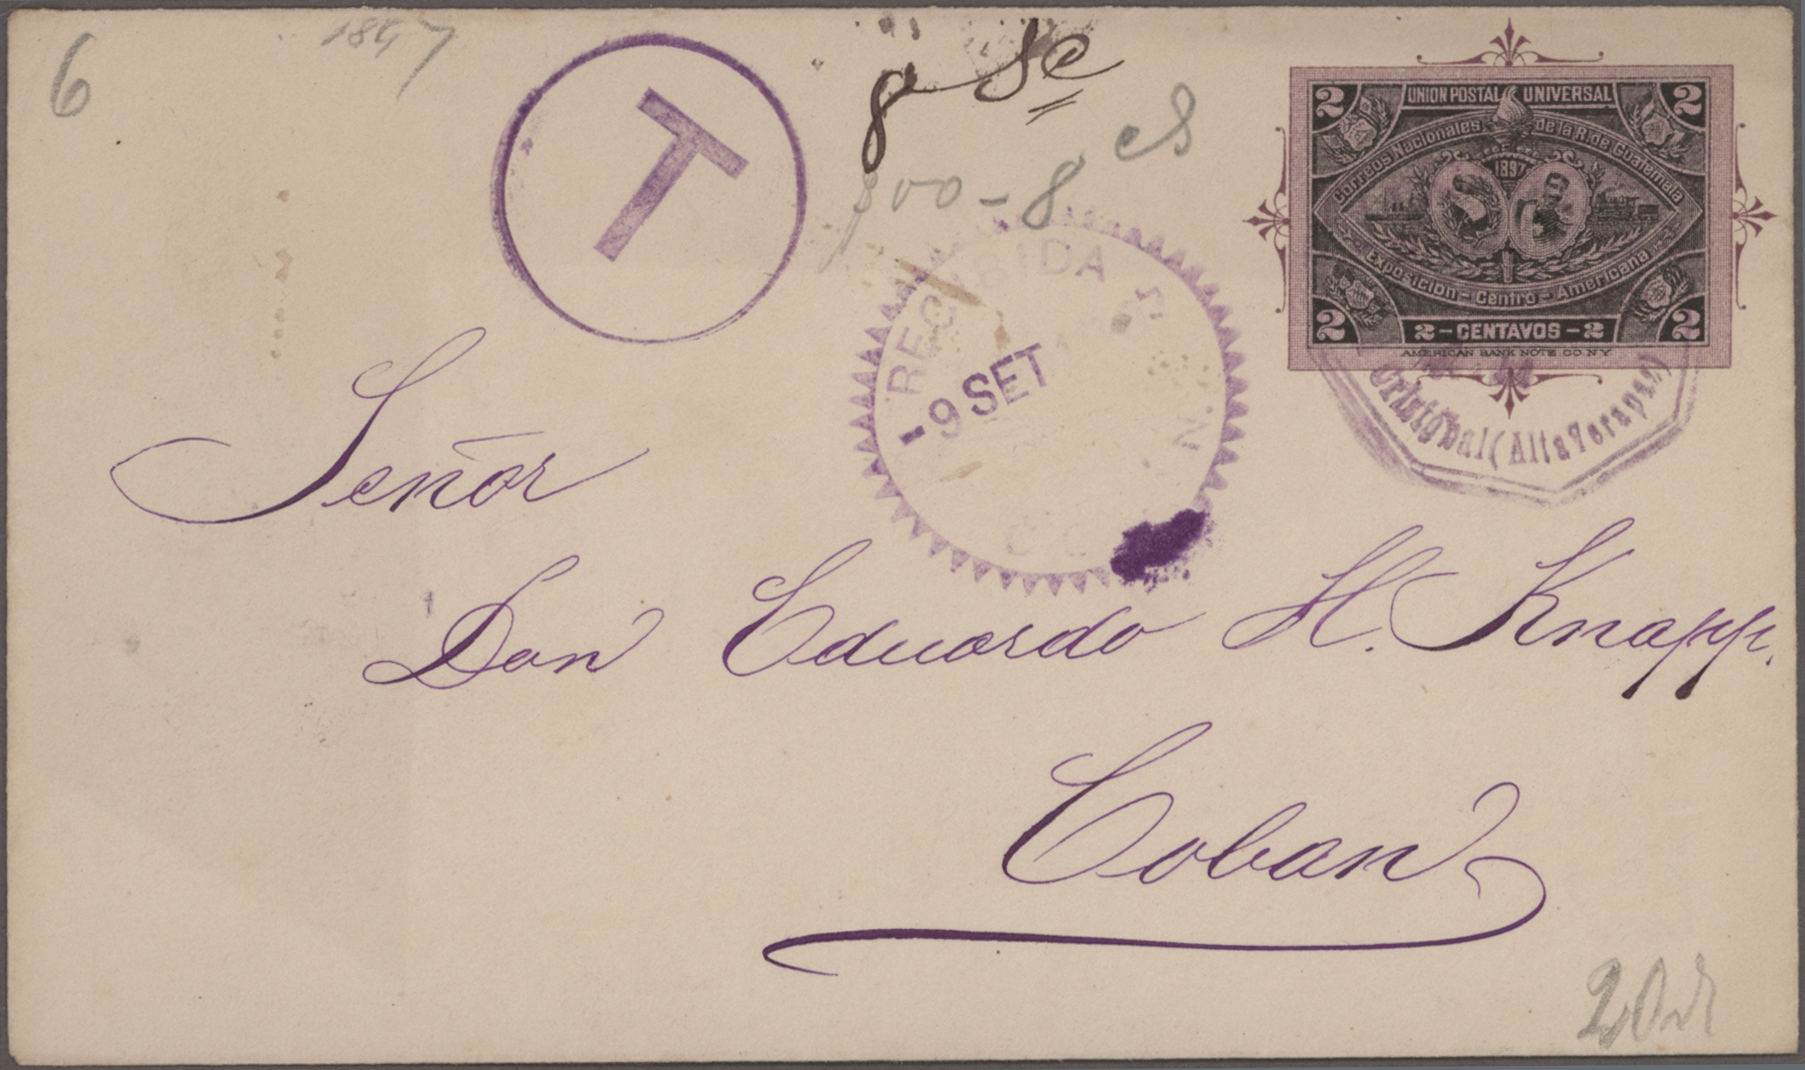 6
1897
T
8 Sc
800-8 cs
UNION POSTAL UNIVERSAL
2 2
Correos Nacionales de la R. de Guatemala
1897
Exposición - Centro - Americana
2 2 - CENTAVOS - 2 2
AMERICAN BANK NOTE CO. N.Y.
RECIBIDA
-9 SET
(Alta Verapaz)
Señor
Don Eduardo H. Knapp.
Coban